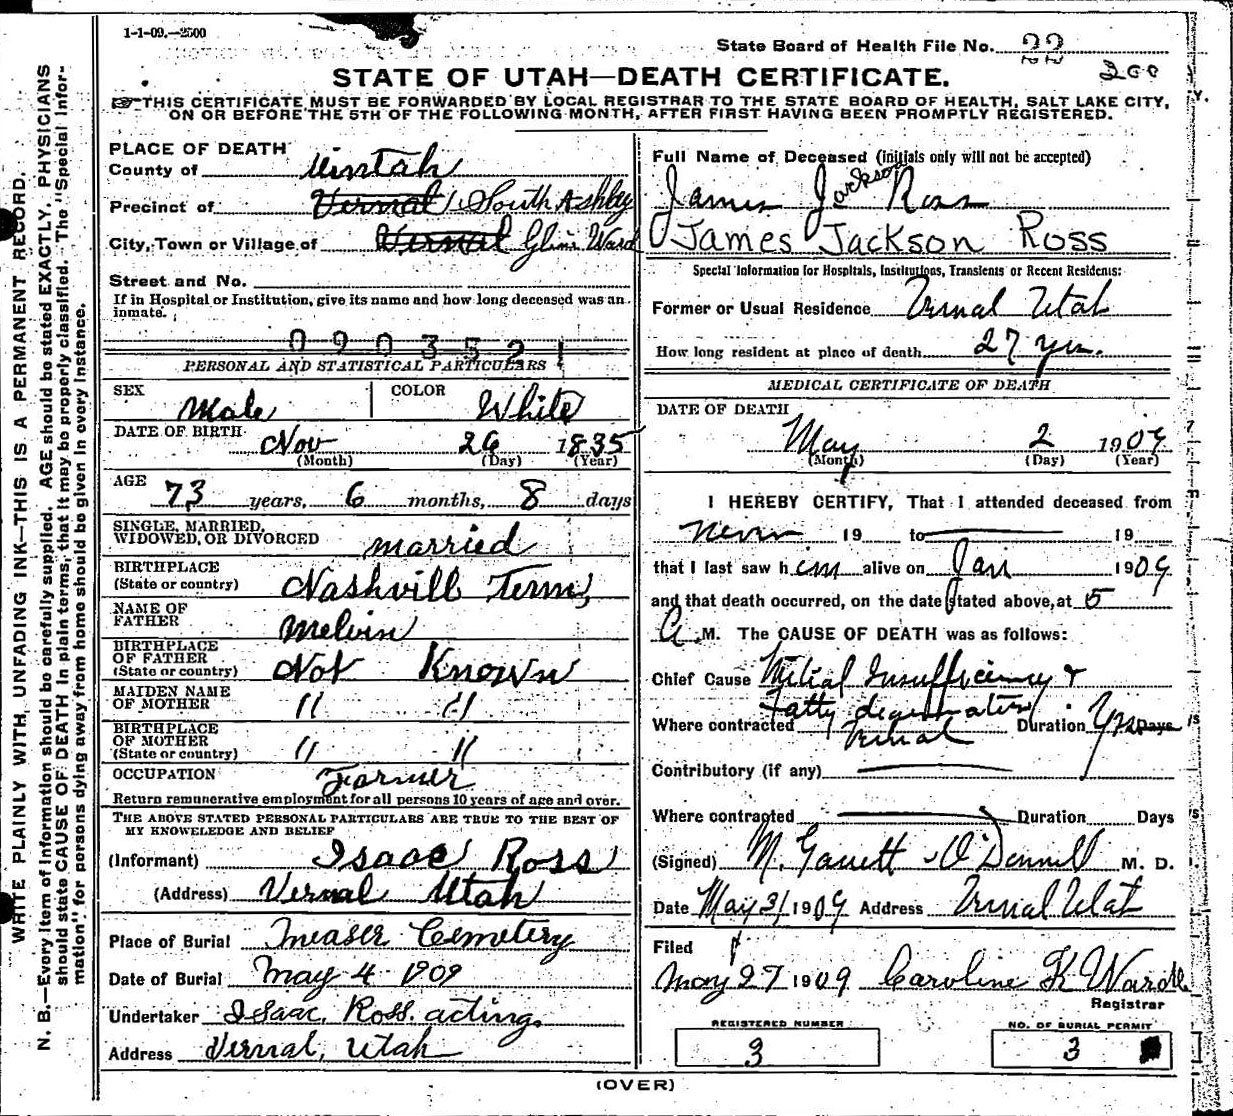 1-1-09.—2500
State Board of Health File No. 22
200
STATE OF UTAH—DEATH CERTIFICATE.
THIS CERTIFICATE MUST BE FORWARDED BY LOCAL REGISTRAR TO THE STATE BOARD OF HEALTH, SALT LAKE CITY,
ON OR BEFORE THE 5TH OF THE FOLLOWING MONTH, AFTER FIRST HAVING BEEN PROMPTLY REGISTERED.
WRITE PLAINLY WITH UNFADING INK—THIS IS A PERMANENT RECORD.
N. B.—Every item of information should be carefully supplied. AGE should be stated EXACTLY. PHYSICIANS
should state CAUSE OF DEATH in plain terms, that it may be properly classified. The "Special Infor-
mation" for persons dying away from home should be given in every instance.
PLACE OF DEATH
County of Uintah
Precinct of Vernal South Ashley
City, Town or Village of Vernal Glines Ward
Street and No.
If in Hospital or Institution, give its name and how long deceased was an
inmate.
0903521
PERSONAL AND STATISTICAL PARTICULARS
SEX Male
COLOR White
DATE OF BIRTH Nov 26 1835
(Month) (Day) (Year)
AGE 73 years, 6 months, 8 days
SINGLE, MARRIED,
WIDOWED, OR DIVORCED married
BIRTHPLACE
(State or country) Nashvill Tenn,
NAME OF
FATHER Melvin
BIRTHPLACE
OF FATHER
(State or country) Not Known
MAIDEN NAME
OF MOTHER " "
BIRTHPLACE
OF MOTHER
(State or country) " "
OCCUPATION Farmer
Return remunerative employment for all persons 10 years of age and over.
THE ABOVE STATED PERSONAL PARTICULARS ARE TRUE TO THE BEST OF
MY KNOWELEDGE AND BELIEF
(Informant) Isaac Ross
(Address) Vernal Utah
Place of Burial Measer Cemetery
Date of Burial May 4 1909
Undertaker Isaac Ross. acting.
Address Vernal, Utah
Full Name of Deceased (initials only will not be accepted)
James Jackson Ross
James Jackson Ross
Special Information for Hospitals, Institutions, Transients or Recent Residents:
Former or Usual Residence Vernal Utah
How long resident at place of death 27 yrs.
MEDICAL CERTIFICATE OF DEATH
DATE OF DEATH
May 2 1909
(Month) (Day) (Year)
I HEREBY CERTIFY, That I attended deceased from
never 19 to 19
that I last saw him alive on Jan 1909
and that death occurred, on the date stated above, at 5
A.M. The CAUSE OF DEATH was as follows:
Chief Cause Mitral Insufficiency &
Fatty degeneration
Where contracted Vernal Duration Yrs Days
Contributory (if any)
Where contracted Duration Days
(Signed) M. Garrett O'Donnell M. D.
Date May 3/1909 Address Vernal Utah
Filed
May 27 1909 Caroline K Wardle
Registrar
REGISTERED NUMBER
3
NO. OF BURIAL PERMIT
3
(OVER)